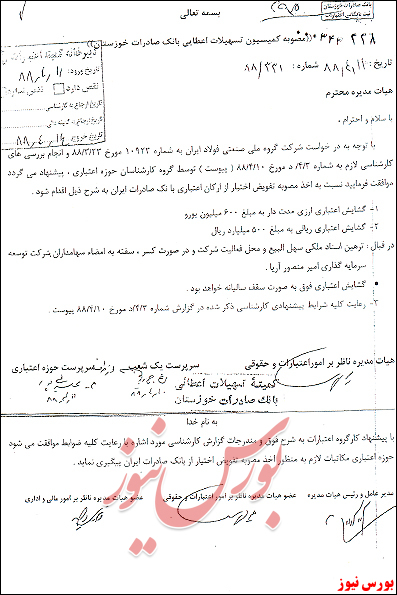 بانک صادرات خوزستان
بسمه تعالی
۳۴۳۲۲۸* ((مصوبه کمیسیون تسهیلات اعطایی بانک صادرات خوزستان))
تاریخ: ۸۸/۴/۱۱ شماره: ۸۸/۳۳۱
هیات مدیره محترم
با سلام و احترام،
با توجه به در خواست شرکت گروه ملی صنعتی فولاد ایران به شماره ۱۰۹۲۳ مورخ ۸۸/۳/۲۳ و انجام بررسی های
کارشناسی لازم به شماره ۴/۳/ د مورخ ۸۸/۴/۱۰ (پیوست) توسط گروه کارشناسان حوزه اعتباری، پیشنهاد می گردد
موافقت فرمایید نسبت به اخذ مصوبه تفویض اختیار از ارکان اعتباری با نک صادرات ایران به شرح ذیل اقدام شود.
۱- گشایش اعتباری ارزی مدت دار به مبلغ ۶۰۰ میلیون یورو
۲- گشایش اعتباری ریالی به مبلغ ۵۰۰ میلیارد ریال
در قبال: ترهین اسناد ملکی سهل البیع و محل فعالیت شرکت و در صورت کسر، سفته به امضاء سهامداران شرکت توسعه
سرمایه گذاری امیر منصور آریا.
● گشایش اعتباری فوق به صورت سقف سالیانه خواهد بود.
۳- رعایت کلیه شرایط پیشنهادی کارشناسی ذکر شده در گزارش شماره ۴/۳/د مورخ ۸۸/۴/۱۰ پیوست.
هیات مدیره ناظر بر امور اعتبارات و حقوقی سرپرست یک شعب سرپرست حوزه اعتباری
کمیته تسهیلات اعطائی
بانک صادرات خوزستان
به نام خدا
با پیشنهاد کارگروه اعتبارات به شرح فوق و مندرجات گزارش کارشناسی مورد اشاره با رعایت کلیه ضوابط موافقت می شود
حوزه اعتباری مکاتبات لازم به منظور اخذ مصوبه تفویض اختیار از بانک صادرات ایران پیگیری نماید.
مدیر عامل و رئیس هیات مدیره عضو هیات مدیره ناظر بر امور اعتبارات و حقوقی عضو هیات مدیره ناظر بر امور مالی و اداری
بورس نیوز
بورس نیوز